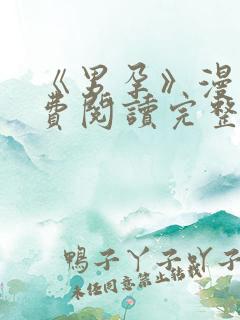 《男孕》漫
費閱讀完整
鴨子丫子吖子
未任同意禁止轉載